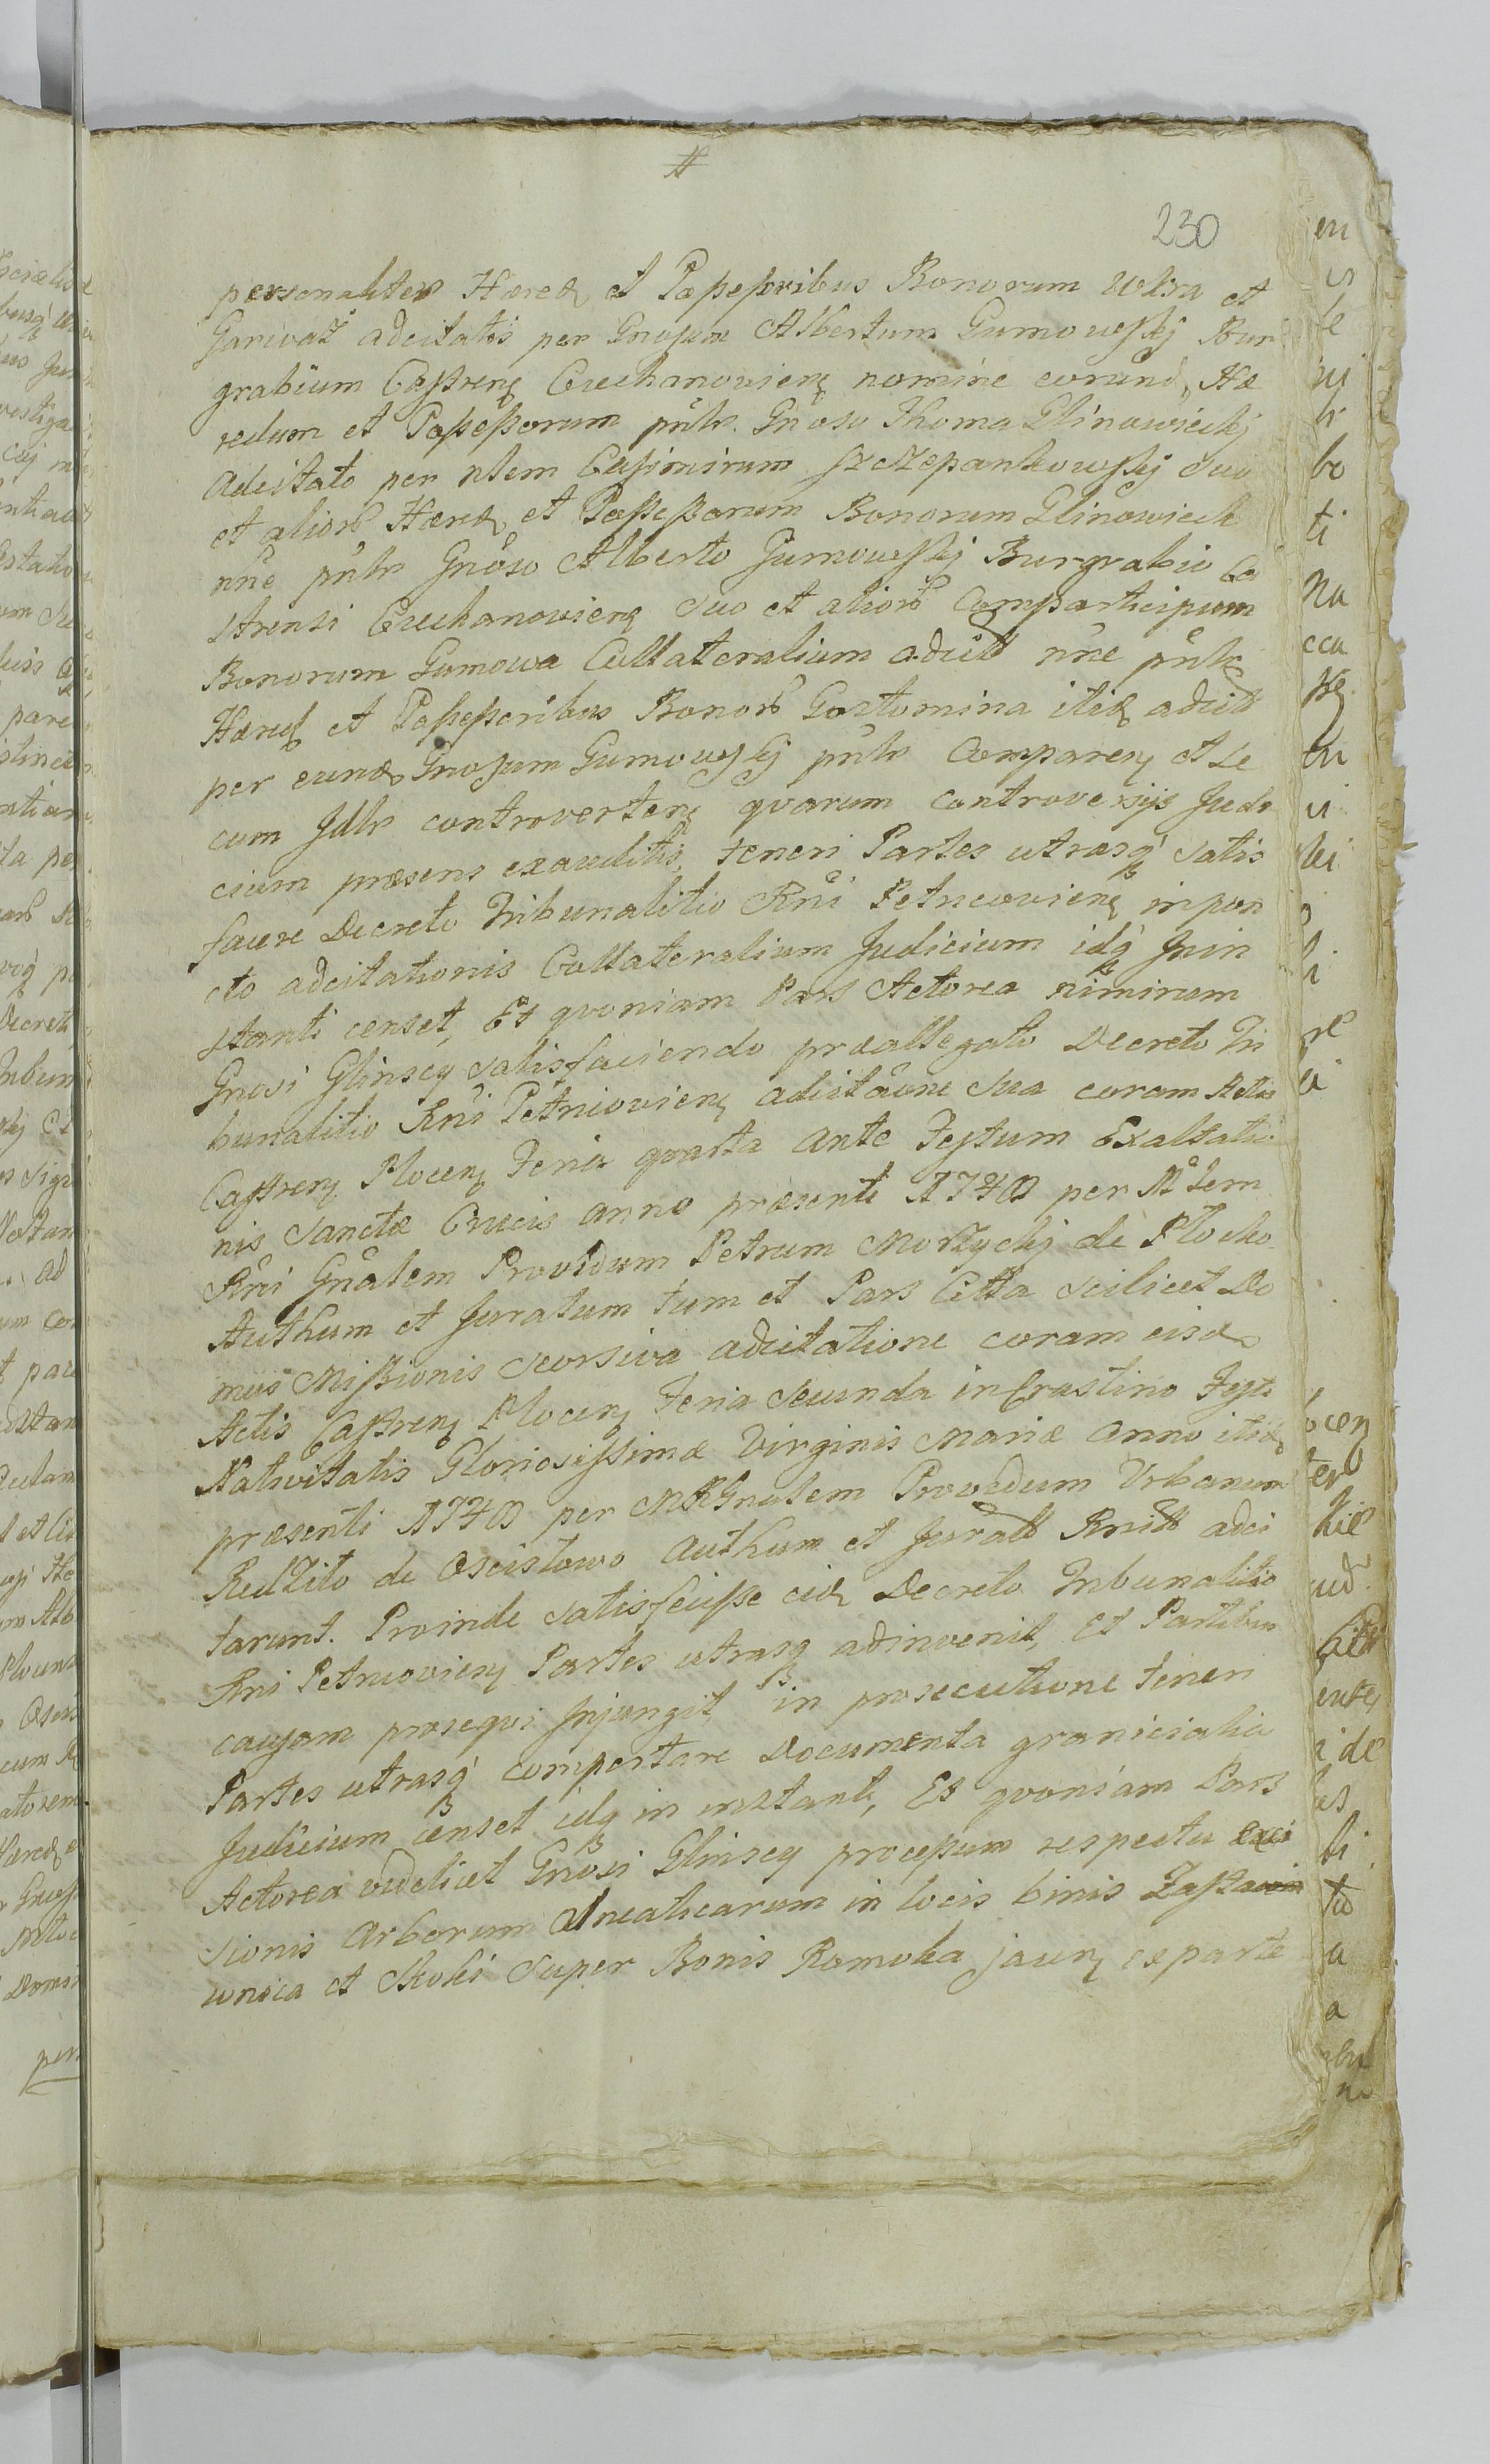 230
personaliter Hæred et Possessoribus Bonorum Wkra et
Garwarz adcitatis per Gnosum Albertum Gumowskj Bur
grabium Castrens Ciechanoviens nomine eorund Hæ
redum et Possessorum pntr. Gnoso Thoma Glinowieckj
Adcitato per ntem Casimirum Szczepankowskj suo
et alior Hæred et Possessorum Bonorum Glinowieck
nne pntr Gnoso Alberto Gumowskj Burgrabio Ca
strensi Ciechanoviens suo et alior Comparticipum
Bonorum Gumowa Collateralium adcitt nne pntr
Hæred et Possessoribus Bonor Gostomina itid adcitt
per eund Gnosum Gumowskj pntr Comparen et se
cum Jdltr controverten qvarum controversijs Judi
cium præsens exauditis, teneri Partes utrasq satis
facere Decreto Tribunalitio Rni Petricoviens in pon
cto adcitationis Collateralium Judicium idq Inin
stanti censet, Et qvoniam Pars Actorea nimirum
Gnosi Glinscy satisfaciendo præallegato Decreto Tri
bunalitio Rni Petricoviens adcitaone sua coram Actis
Castrens Plocens Feria qvarta ante Festum Exaltatio
nis Sanctæ Crucis anno præsenti 1740 per Mtem
Rni Gnalem Providum Petrum Morzyckj de Plocko
Authum et Juratum tum et Pars Citta scilicet Do
mus Missionis seorsiva adcitatione coram eisd
Actis Castrens Plocens Feria secunda in Crastino Festi
Nativitatis Gloriosissimæ Virginis Mariæ Anno itid
præsenti 1740 per MRGnalem Providum Urbanum
Redzito de Oscistowo Authum et Juratt Rnitt adci
tarunt. Proinde satisfecisse eid Decreto Tribunalitio
Rni Petricoviens Partes utrasq adinvenit, Et Partibus
causam proseqvi Injungit, in prosecutione teneri
Partes utrasq comportare Documenta granicialia
Judicium censet idq in instanti, Et qvoniam Pars
Actorea videlicet Gnosi Glinscy processum respectu exci
sionis Arborum Alneaticarum in locis binis Zastaw
wnica et Stoki super Bonis Romoka jacen ex parte